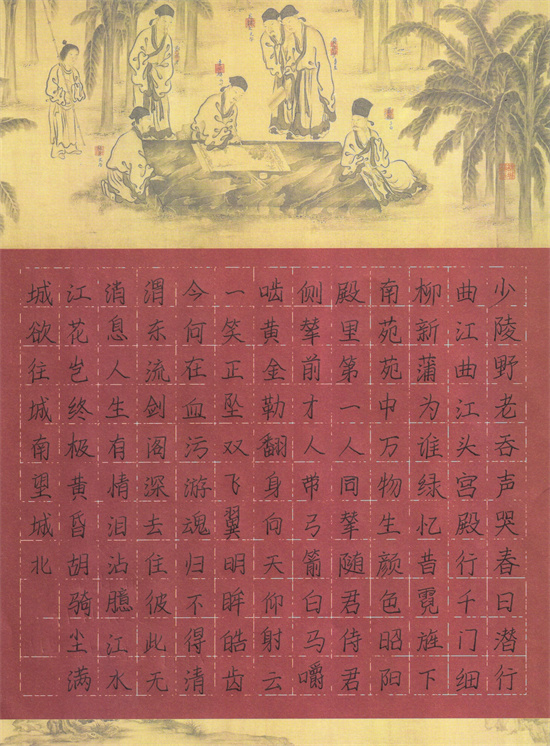 少陵野老吞声哭春日潜行
曲江曲江头宫殿行千门细
柳新蒲为谁绿忆昔霓旌下
南苑苑中万物生颜色昭阳
殿里第一人同辇随君侍君
侧辇前才人带弓箭白马嚼
啮黄金勒翻身向天仰射云
一笑正坠双飞翼明眸皓齿
今何在血污游魂归不得清
渭东流剑阁深去住彼此无
消息人生有情泪沾臆江水
江花岂终极黄昏胡骑尘满
城欲往城南望城北